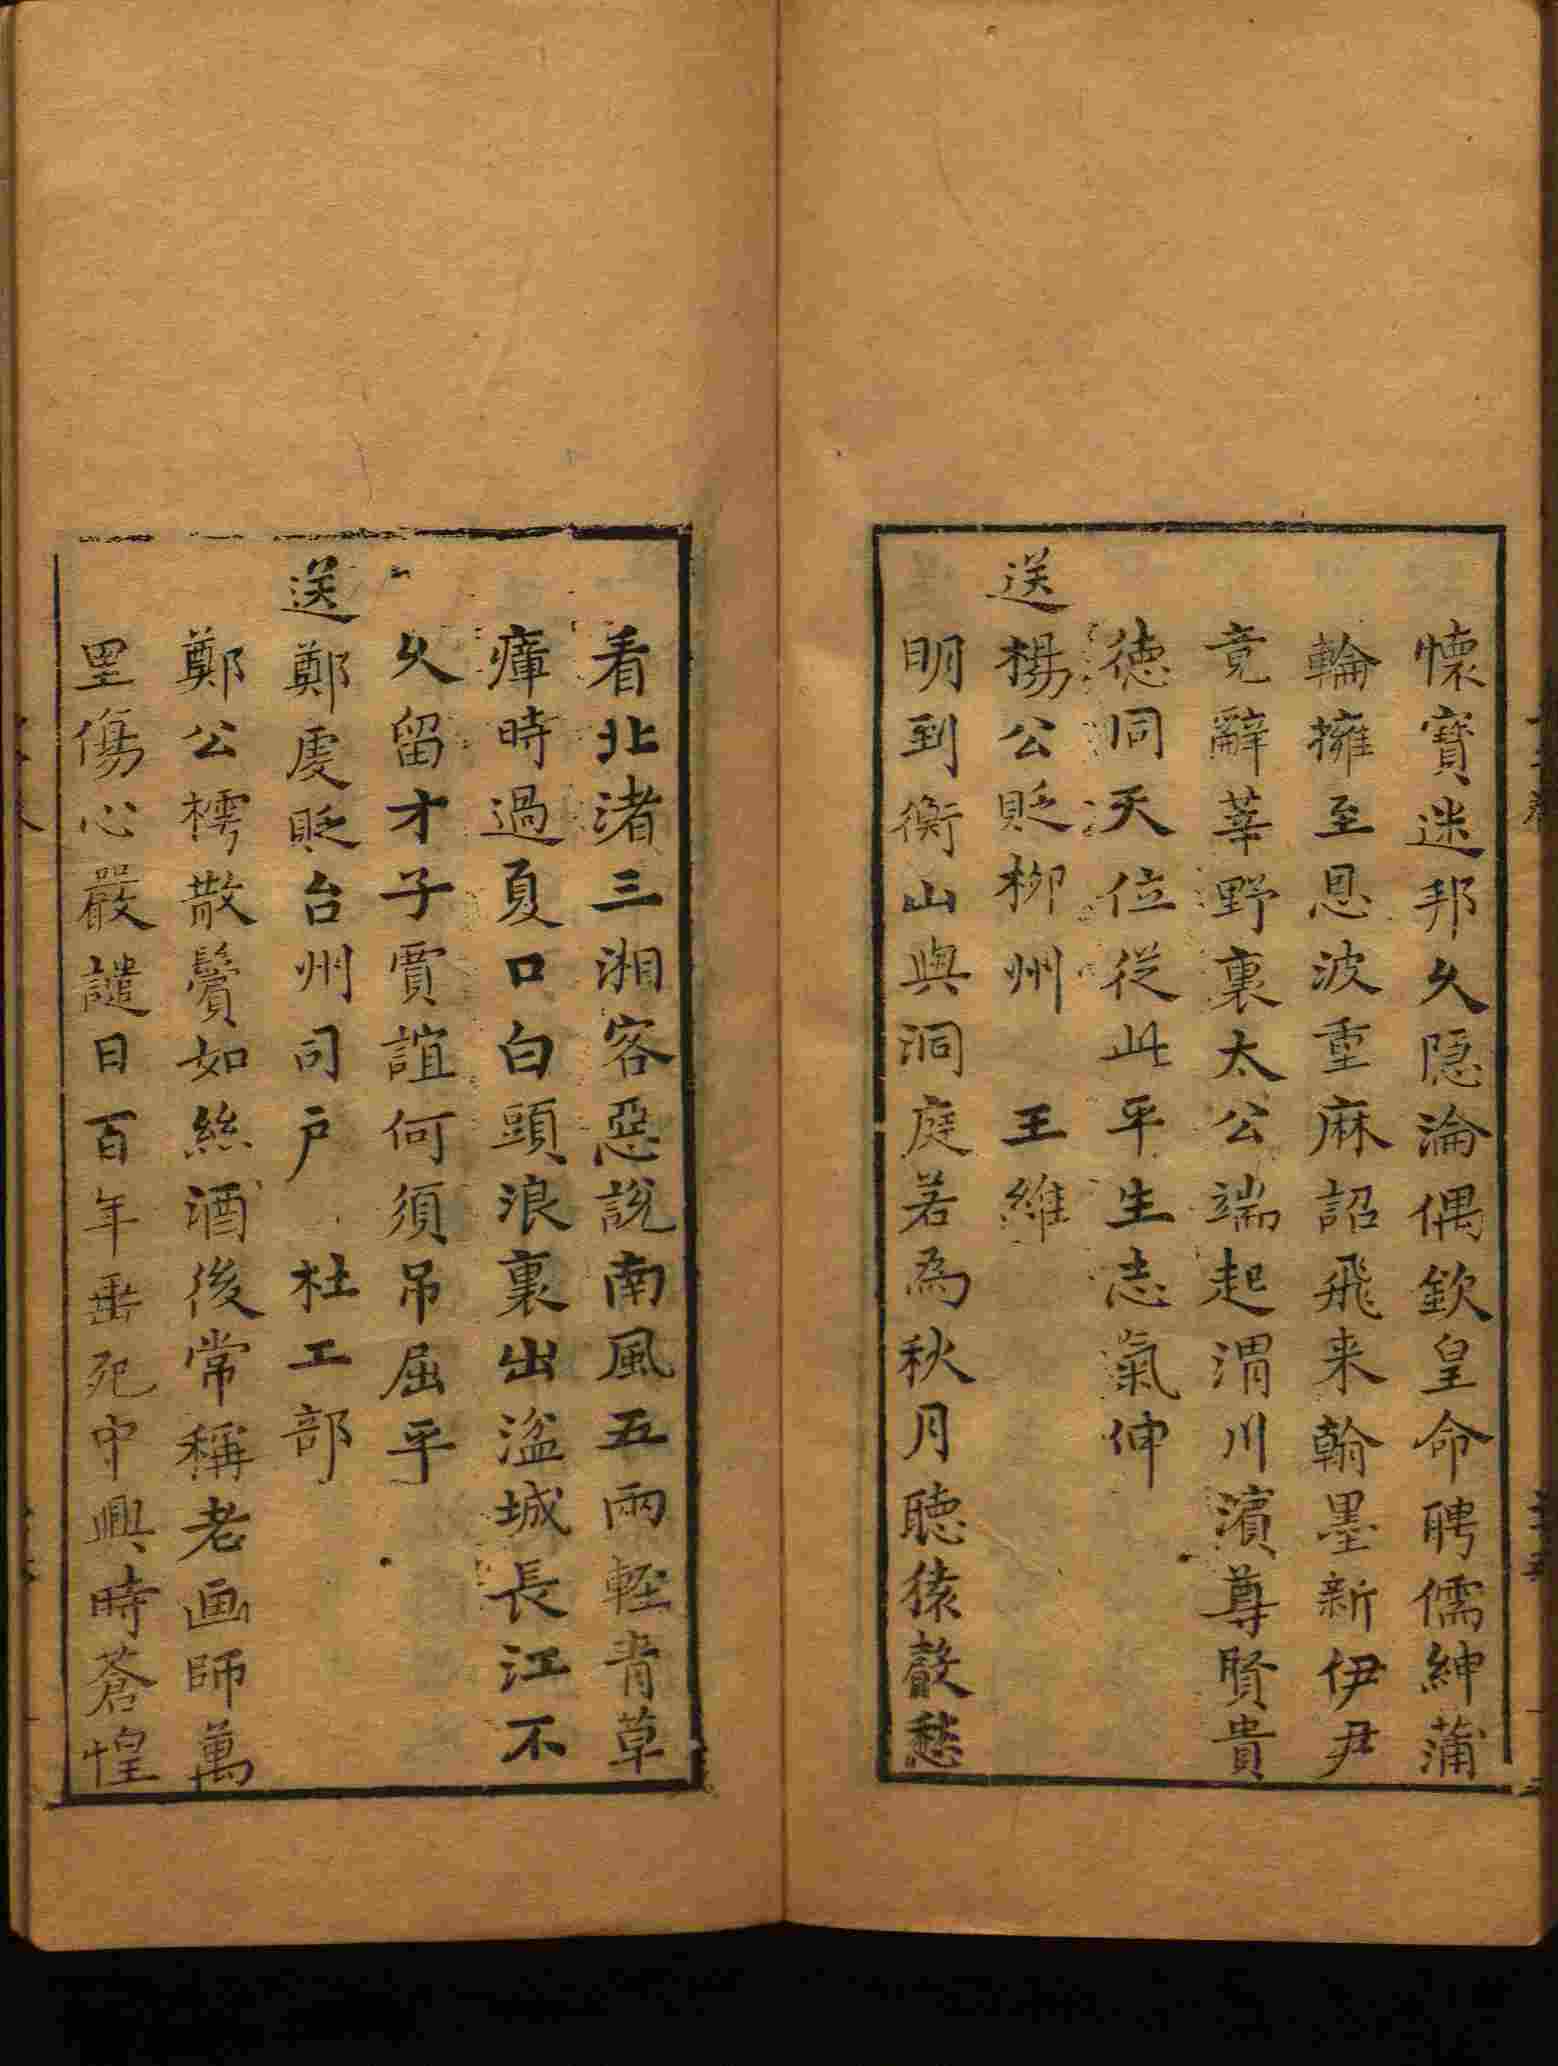 懐寳迷邦久隠淪偶欽皇命聘儒紳蒲
輪擁至恩波重麻詔飛来翰墨新伊尹
竟辭莘野裏太公端起渭川濱尊賢貴
徳同天位従此平生志氣伸
送楊公貶柳州　王維
明到衡山與洞庭若為秋月聴猿聲愁
看北渚三湘客惡說南風五兩輕青草
瘴時過夏口白頭浪裏出湓城長江不
久留才子賈誼何須吊屈乎
送鄭虔貶台州司户　杜工部
鄭公樗散鬢如絲酒後常稱老画師萬
里傷心嚴譴日百年垂死中興時蒼惶